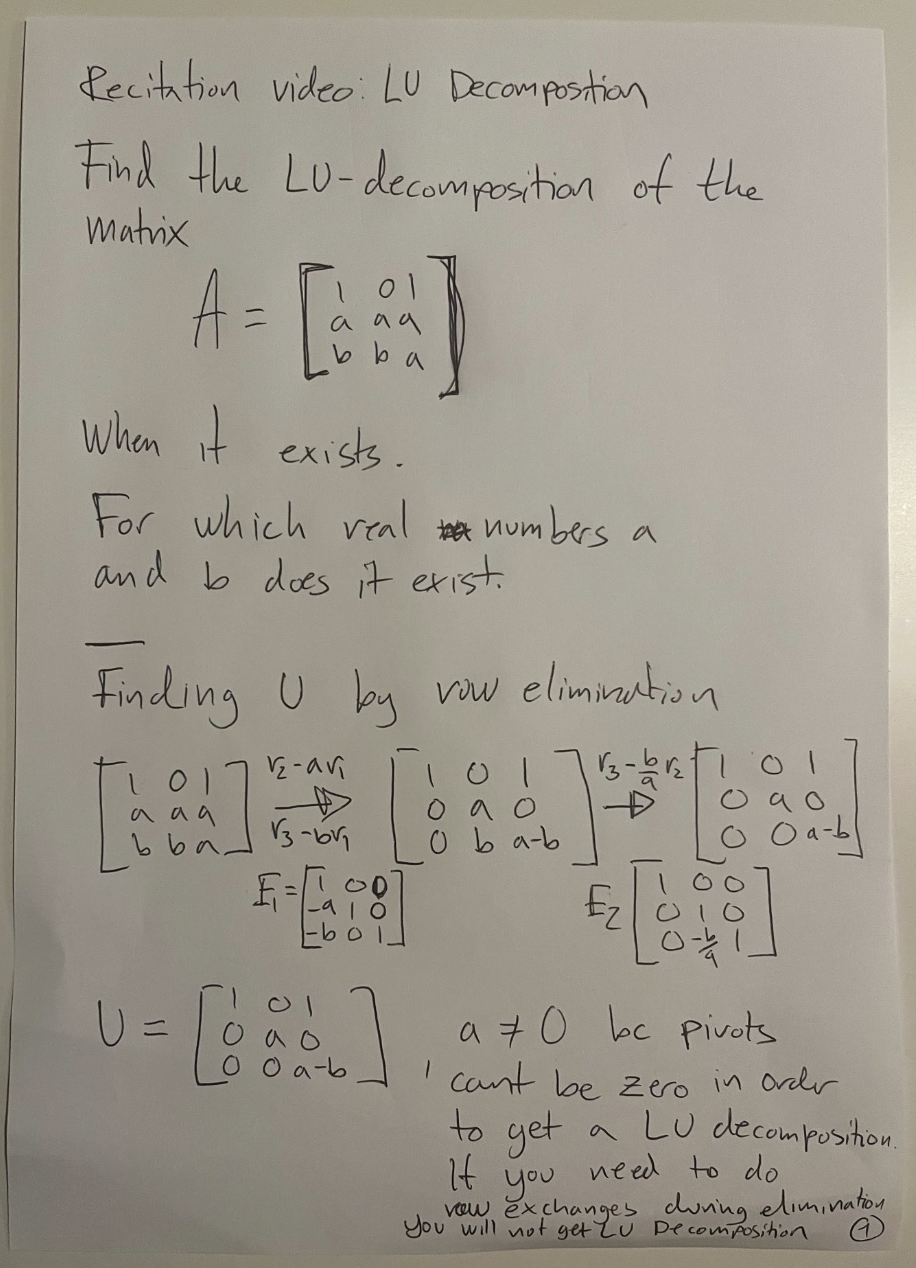 Recitation video: LU Decompostion
Find the LU-decomposition of the
matrix
A = [1 0 1
a a a
b b a]
When it exists.
For which real numbers a
and b does it exist.
Finding U by row elimination
[1 0 1
a a a
b b a]
r2-ar1
r3-br1
[1 0 1
0 a 0
0 b a-b]
r3-b/a r2
[1 0 1
0 a 0
0 0 a-b]
E1=[1 0 0
-a 1 0
-b 0 1]
E2 [1 0 0
0 1 0
0 -b/a 1]
U = [1 0 1
0 a 0
0 0 a-b] ,
a ≠ 0 bc pivots
cant be zero in order
to get a LU decomposition.
If you need to do
row exchanges during elimination
you will not get LU Decomposition
1